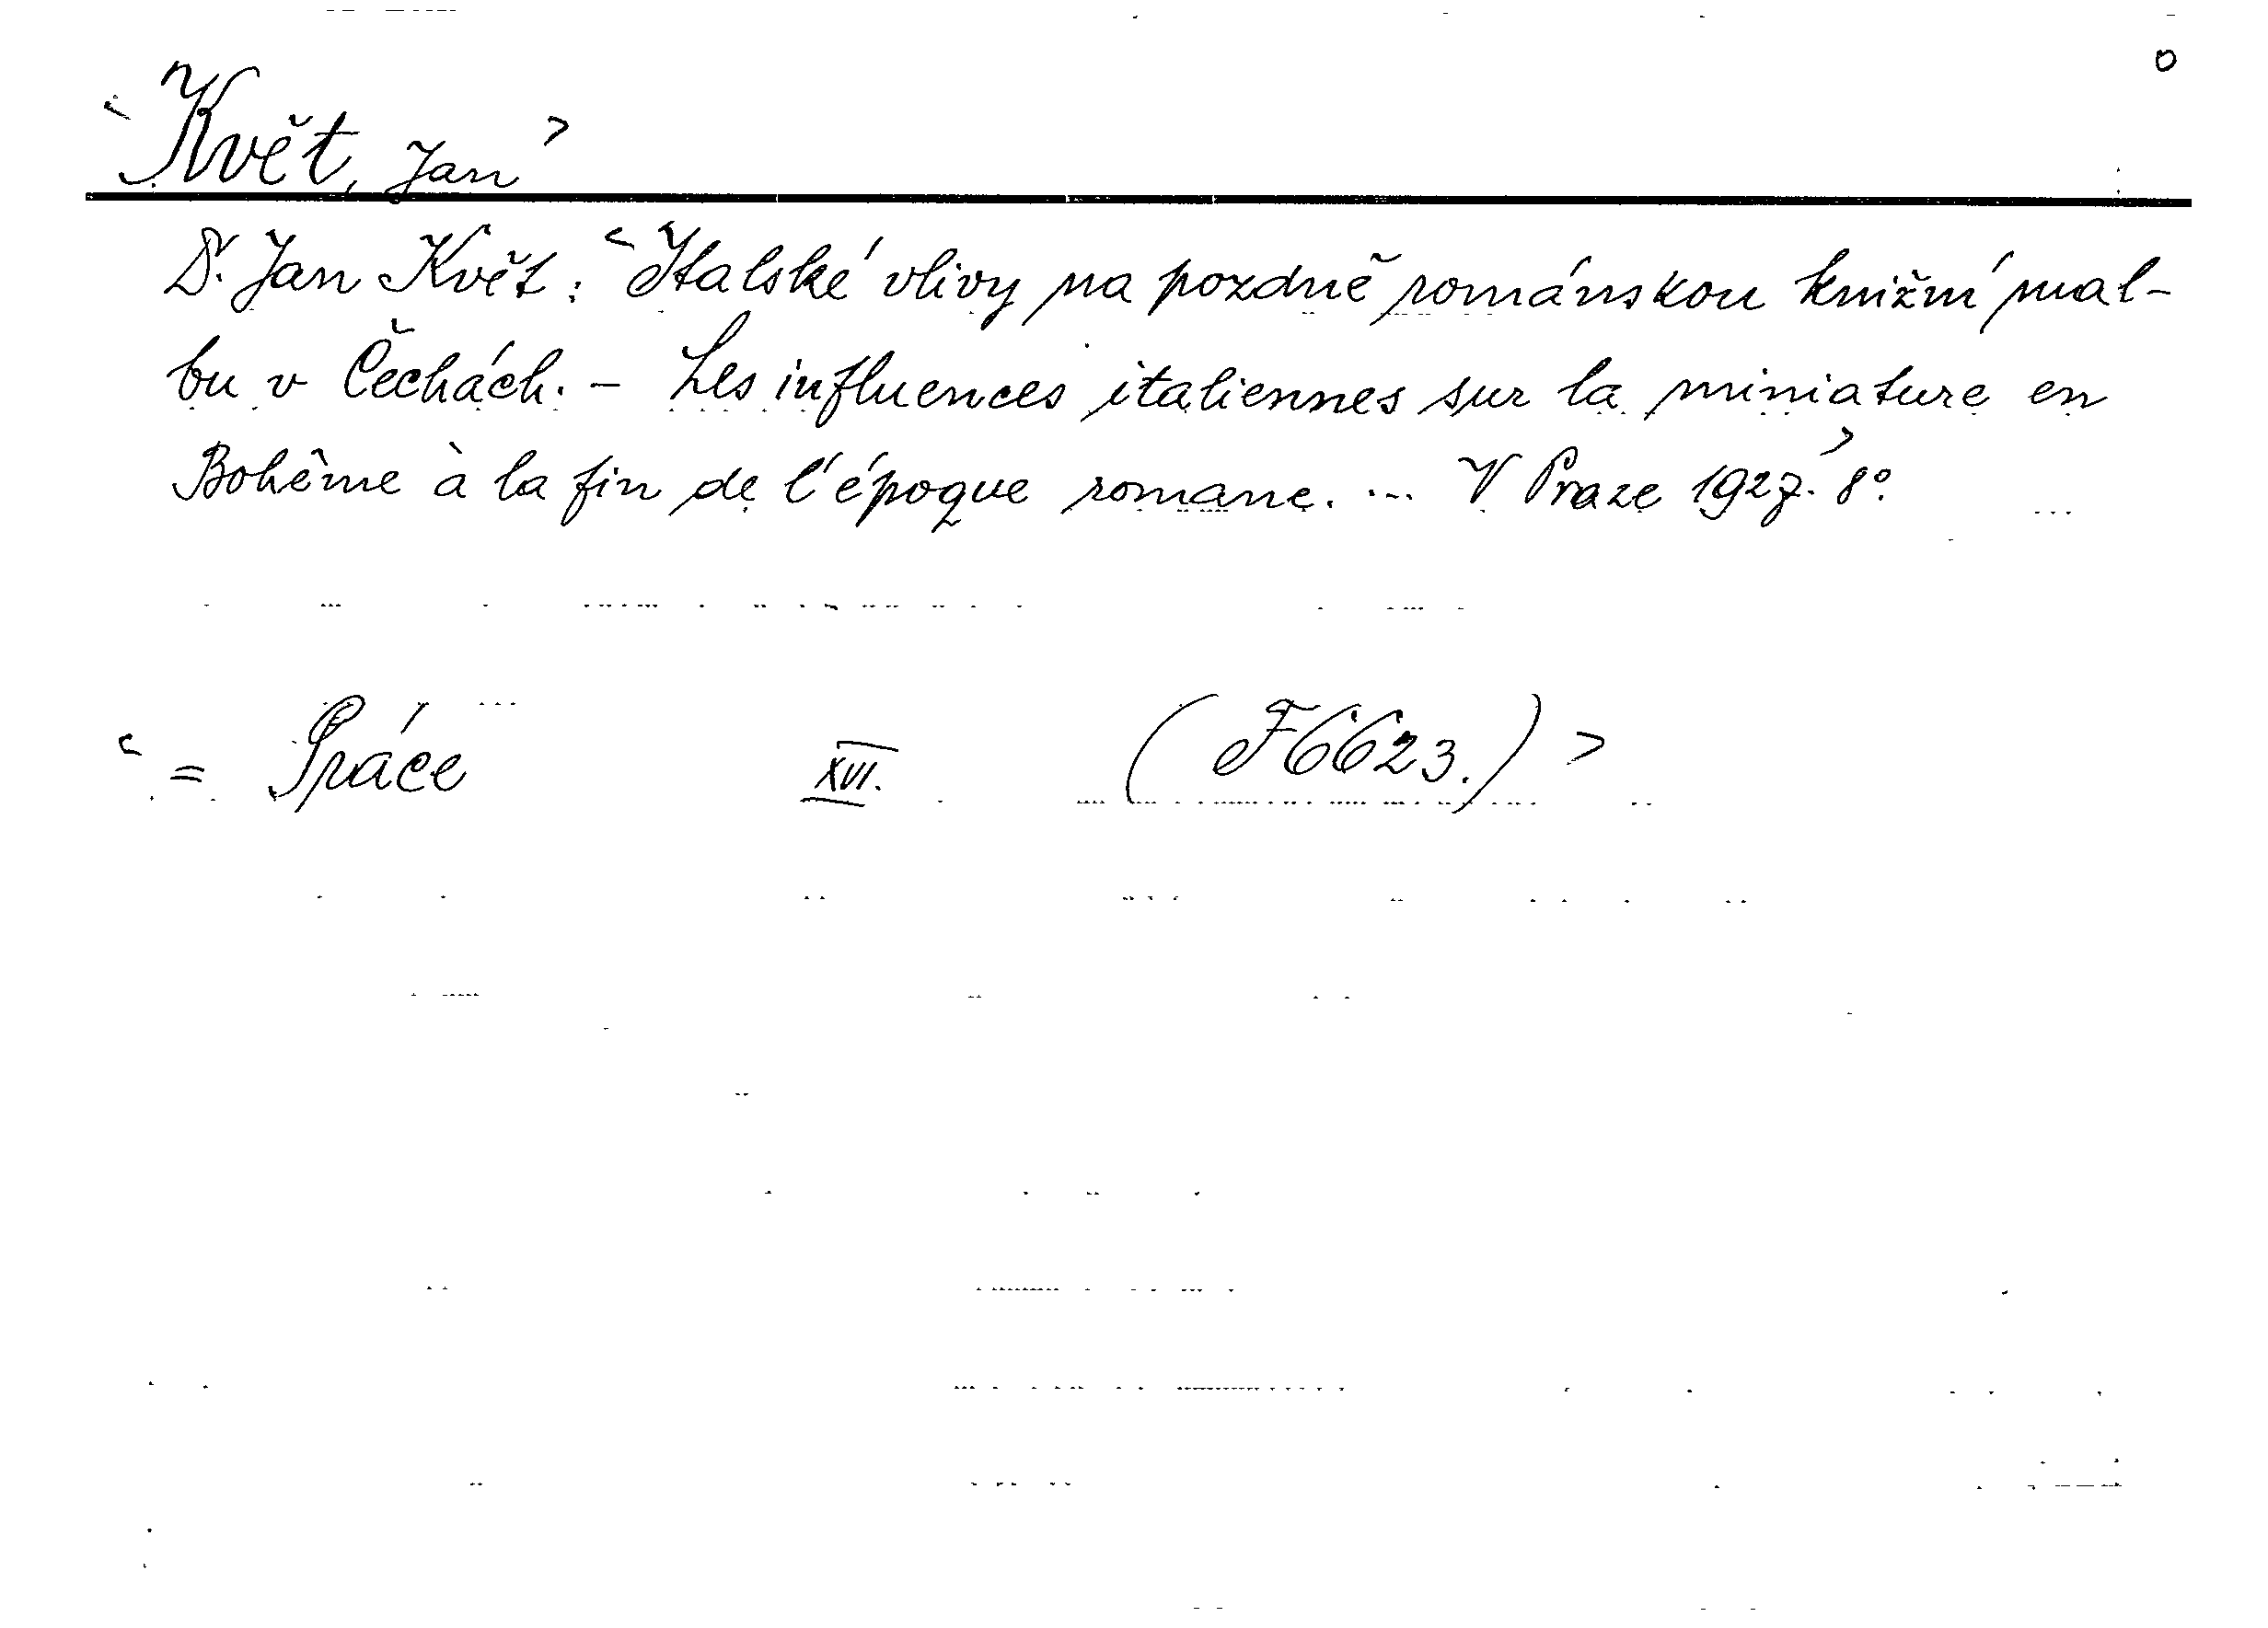 o
< Květ, Jan >
Dr. Jan Květ: < Italské vlivy na pozdně románskou knižní mal-
bu v Čechách. – Les influences italiennes sur la miniature en
Bohême à la fin de l'époque romane. ... V Praze 1927. > 8°.
< = Práce XVI. (F6623.) >